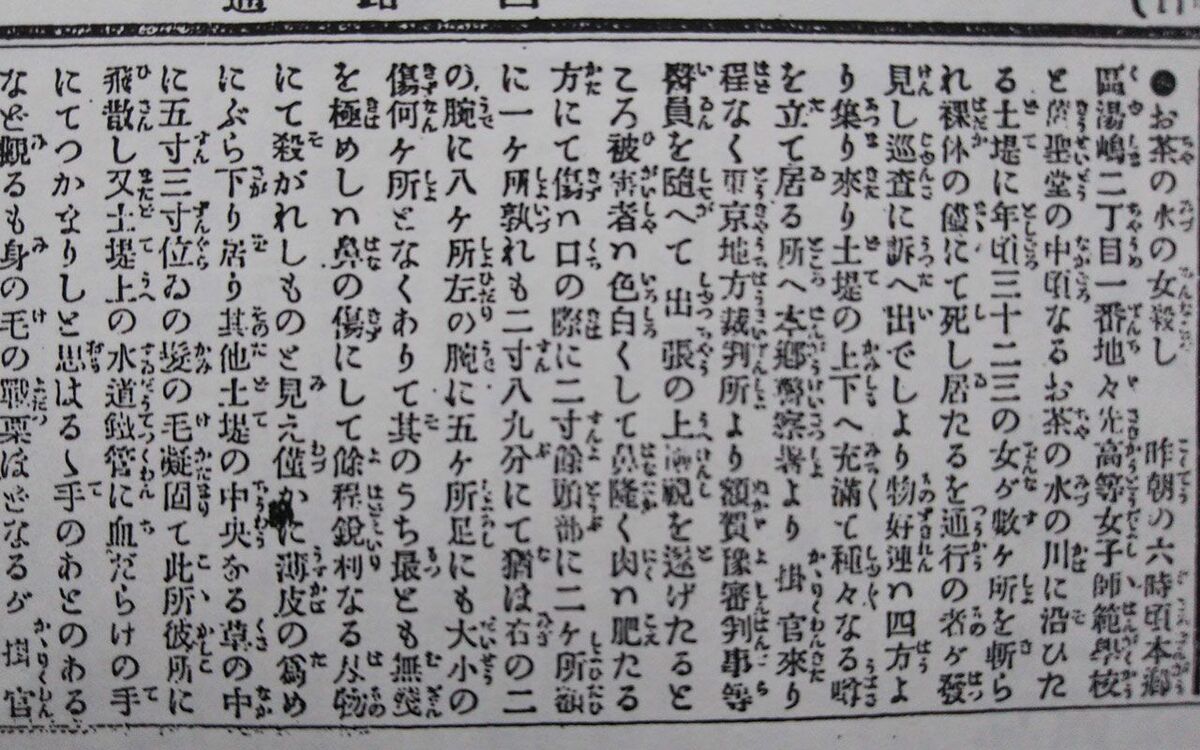 ●お茶の水の女殺し 昨朝の六時頃本郷
區湯嶋二丁目一番地々先高等女子師範學校
と舊聖堂の中頃なるお茶の水の川に沿ひた
る土堤に年頃三十二三の女が數ヶ所を斬ら
れ裸体の儘にて死し居たるを通行の者が發
見し巡査に訴へ出でしより物好連ハ四方よ
り集り來り土堤の上下へ充滿て種々なる噂
を立て居る所へ本郷警察署より掛官來り
程なく東京地方裁判所より額賀豫審判事等
醫員を隨へて出張の上臨視を遂げたると
ころ被害者ハ色白くして鼻隆く肉ハ肥たる
方にて傷ハ口の際に二寸餘頭部に二ヶ所額
に一ヶ所孰れも二寸八九分にて猶ほ右の二
の腕に八ヶ所左の腕に五ヶ所足にも大小の
傷何ヶ所となくありて其のうち最とも無殘
を極めしハ鼻の傷にして餘程鋭利なる刄物
にて殺がれしものと見え僅かに薄皮の爲め
にぶら下り居り其他土堤の中央なる草の中
に五寸三寸位ゐの髮の毛凝固て此所彼所に
飛散し又土堤上の水道鐵管に血だらけの手
にてつかまりしと思はるゝ手のあとのある
など觀るも身の毛の戰栗ほどなるが掛官